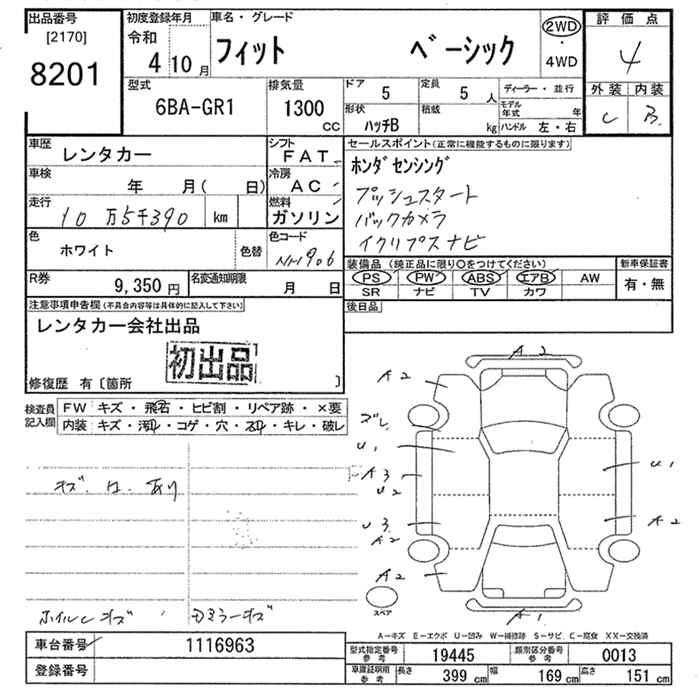 出品番号
[2170]
8201
初度登録年月
令和
4 10 月
車名・グレード
フィット ベーシック
2WD
・
4WD
評価点
4
外装 内装
C B
型式
6BA-GR1
排気量
1300
CC
ドア
5
定員
5 人
形状
ハッチB
積載
kg
ディーラー・並行
モデル年式 年
ハンドル 左・右
車歴
レンタカー
シフト
FAT
車検
年 月( 日)
冷房
AC
走行
10 万5千390 km
燃料
ガソリン
色
ホワイト
色替
色コード
NH906
セールスポイント(正常に機能するものに限ります)
ホンダセンシング
プッシュスタート
バックカメラ
イクリプスナビ
R券
9,350 円
名変通知期限
月 日
装備品(純正品に限り○をつけてください)
PS PW ABS エアB AW
SR ナビ TV カワ
新車保証書
有・無
注意事項申告欄(不具合内容等は具体的に記入して下さい)
レンタカー会社出品
初出品
修復歴 有〔箇所 〕
後日品
検査員
記入欄
FW キズ・飛石・ヒビ割・リペア跡・×要
内装 キズ・汚れ・コゲ・穴・スレ・キレ・破レ
キズ.凹.あり
ホイルキズ
A2
A2
ズレ
U1
A3
U2
U3
A2
A2
U1
A2
A1
スペア
A-キズ E-エクボ U-凹み W-補修跡 S-サビ、C-腐食 XX-交換済
車台番号
1116963
型式指定番号
参考
19445
類別区分番号
参考
0013
登録番号
車庫証明用
参考
長さ
399 cm
幅
169 cm
高さ
151 cm